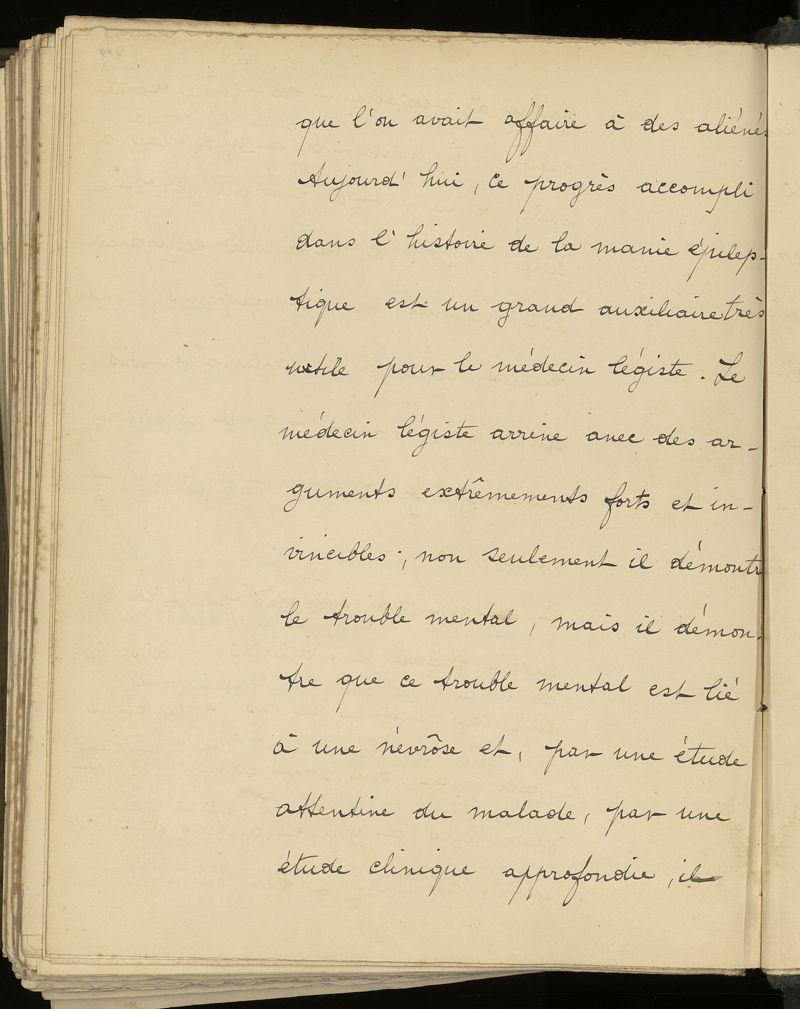 que l'on avait affaire à des aliénés
Aujourd'hui, ce progrès accompli
dans l'histoire de la manie épilep-
tique est un grand auxiliaire très
utile pour le médecin légiste. Le
médecin légiste arrive avec des ar-
guments extrêmements forts et in-
vincibles ; non seulement il démontre
le trouble mental, mais il démon-
tre que ce trouble mental est lié
à une névrôse et, par une étude
attentive du malade, par une
étude clinique approfondie, il